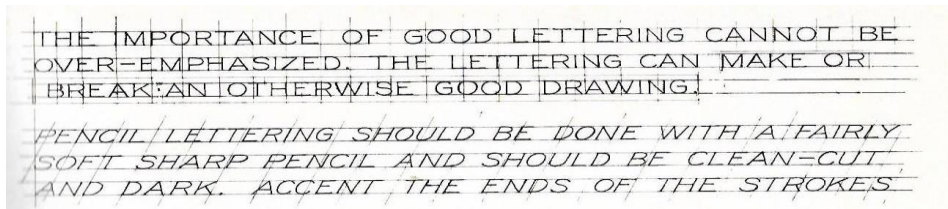 THE IMPORTANCE OF GOOD LETTERING CANNOT BE
OVER-EMPHASIZED. THE LETTERING CAN MAKE OR
BREAK AN OTHERWISE GOOD DRAWING.
PENCIL LETTERING SHOULD BE DONE WITH A FAIRLY
SOFT SHARP PENCIL AND SHOULD BE CLEAN-CUT
AND DARK. ACCENT THE ENDS OF THE STROKES